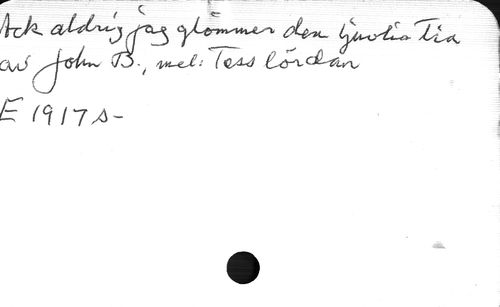 Ack aldrig jag glömmer den ljuvlia Tia
av John B., mel: Tess lördan
E 1917 s-